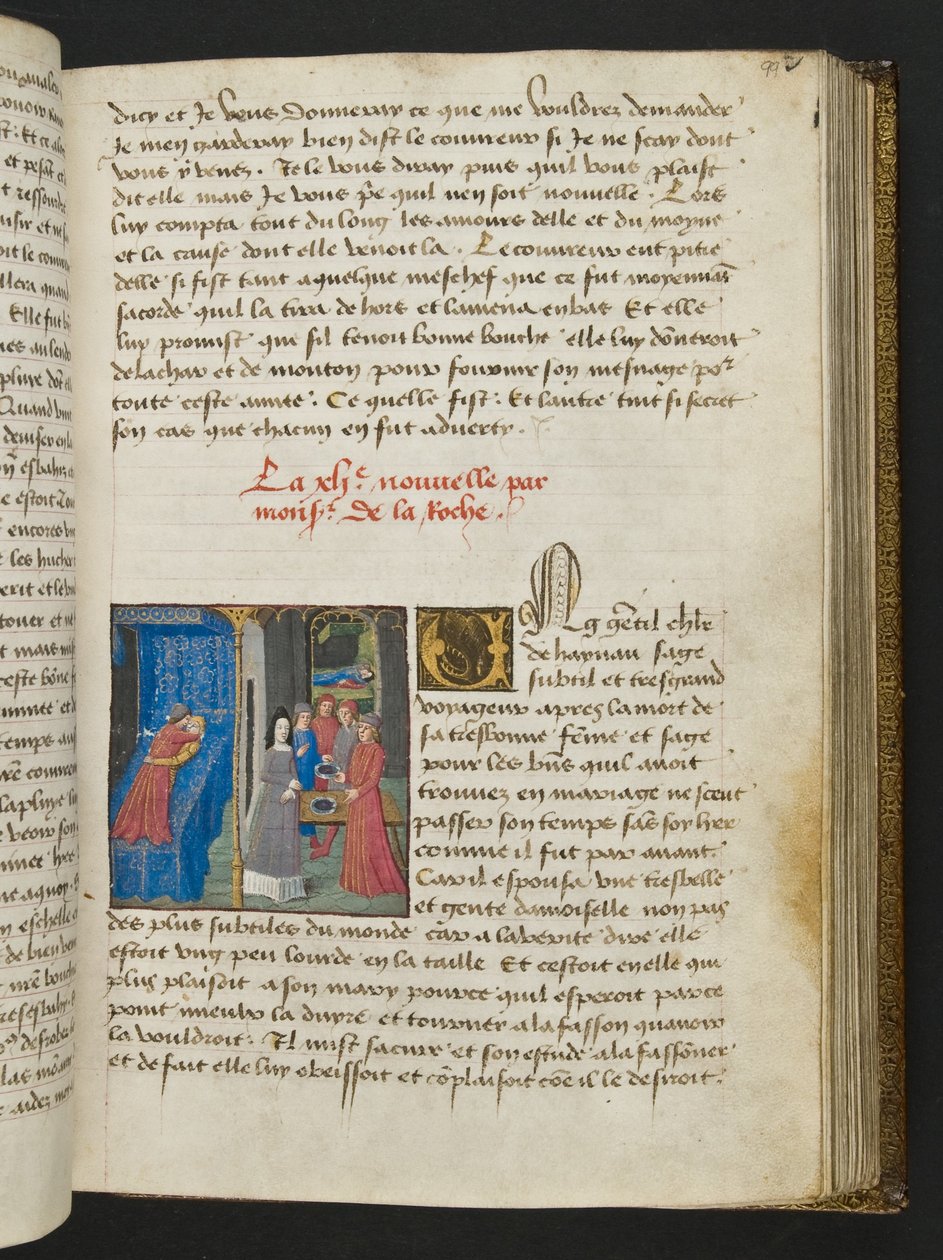 99
dicy et Je vous donneray ce que me vouldrez demander
Je men garderay bien dist le couvreur si Je ne scay dont
vous y venez. Je le vous diray puis quil vous plaist
dit elle mais Je vous pe quil nen soit nouvelle. Lors
luy compta tout du long les amours delle et du moyne
et la cause dont elle venoit la. Le couvreur eut pitie
delle si fist tant a quelque meschef que ce fut moyennant
sa corde quil la tira de hors et lamena en bas Et elle
luy promist que sil tenoit bonne bouche elle luy donneroit
de la char et de mouton pour fournir son mesnage por
toute ceste annee. Ce quelle fist. Et lautre tint si secret
son cas que chacun en fut adverty.
La xlie nouvelle par
monsr. De la Roche.
Ung getil chlr
de haynau sage
subtil et tresgrand
voyageur apres la mort de
sa tresbonne feme et sage
pour les bns quil avoit
trouvez en mariage ne sceut
passer son temps sas soy lier
comme il fut par avant.
Car il espousa une tresbelle
et gente damoiselle non pas
des plus subtiles du monde car a la verite dire elle
estoit ung peu lourde en la taille Et cestoit en elle qui
plus plaisoit a son mary pource quil esperoit par ce
point mieulx la duyre et tourner a la fasson quavoir
la vouldroit. Il mist sa cure et son estude a la fassoner
et de fait elle luy obeissoit et coplaisoit coe il le desiroit.